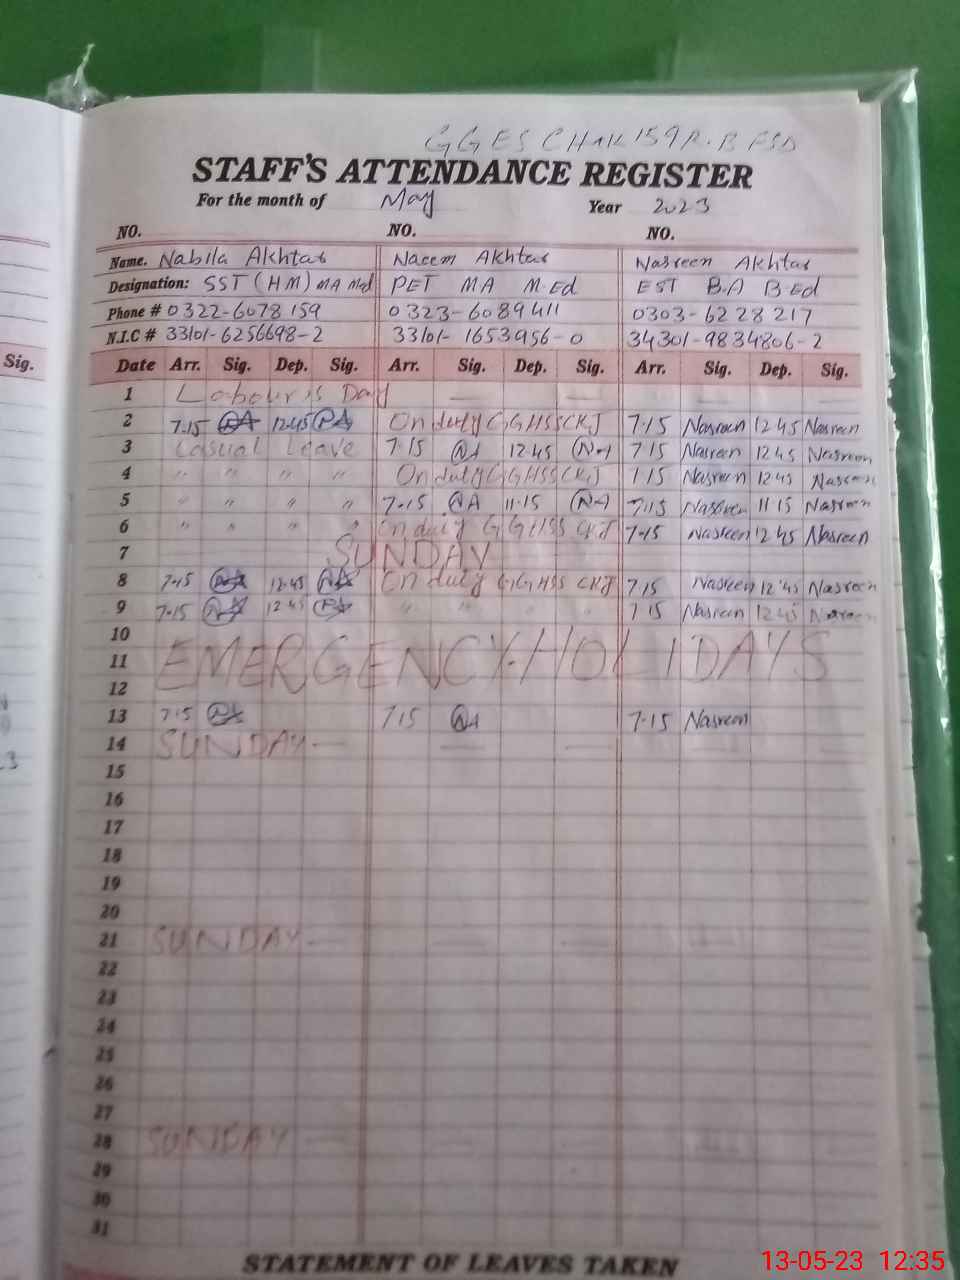 GGES CHAK 159 R.B FSD
STAFF'S ATTENDANCE REGISTER
For the month of May Year 2023
NO. NO. NO.
Name. Nabila Akhtar Naeem Akhtar Nasreen Akhtar
Designation: SST (HM) MA M.ed PET MA M.Ed EST B.A B.Ed
Phone # 0322-6078159 0323-6089411 0303-6228217
N.I.C # 33101-6256698-2 33101-1653956-0 34301-9834806-2
Sig. Date Arr. Sig. Dep. Sig. Arr. Sig. Dep. Sig. Arr. Sig. Dep. Sig.
1 Labour's Day
2 7.15 12.45 On duty GGHSS CKJ 7.15 Nasreen 12 45 Nasreen
3 Casual Leave 7.15 NA 12.45 NA 7.15 Nasreen 12 45 Nasreen
4 " " " " On duty GGHSS CKJ 7.15 Nasreen 12 45 Nasreen
5 " " " " 7.15 NA 11.15 NA 7.15 Nasreen 11 15 Nasreen
6 " " " " On duty GGHSS CKJ 7.15 Nasreen 12 45 Nasreen
7 SUNDAY
8 7.15 12.45 On duty GGHSS CKJ 7.15 Nasreen 12 45 Nasreen
9 7.15 12 45 " " " " 7.15 Nasreen 12 45 Nasreen
10
11 EMERGENCY HOLIDAYS
12
13 7.15 7.15 NA 7.15 Nasreen
14 SUNDAY
15
16
17
18
19
20
21 SUNDAY
22
23
24
25
26
27
28 SUNDAY
29
30
31
STATEMENT OF LEAVES TAKEN
13-05-23 12:35